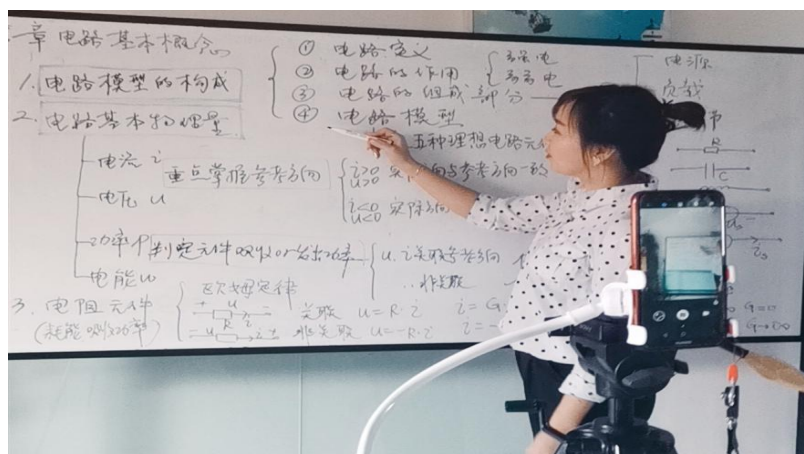 章 电路基本概念
1. 电路模型的构成
① 电路定义
② 电路的作用
强电
弱电
③ 电路的组成部分
电源
负载
④ 电路模型
五种理想电路元
2. 电路基本物理量
电流 i
电压 u
重点掌握参考方向
i>0
u>0
方向与参考方向一致
i<0
u<0
实际方向
功率P 判定元件吸收or发出功率
u.i关联参考方向
非关联
电能w
3. 电阻元件
(耗能 吸收功率)
欧姆定律
+ u −
R i
关联 u=R·i
i=G
− u
R i
非关联 u=−R·i
i=−
R
C
is
G=0